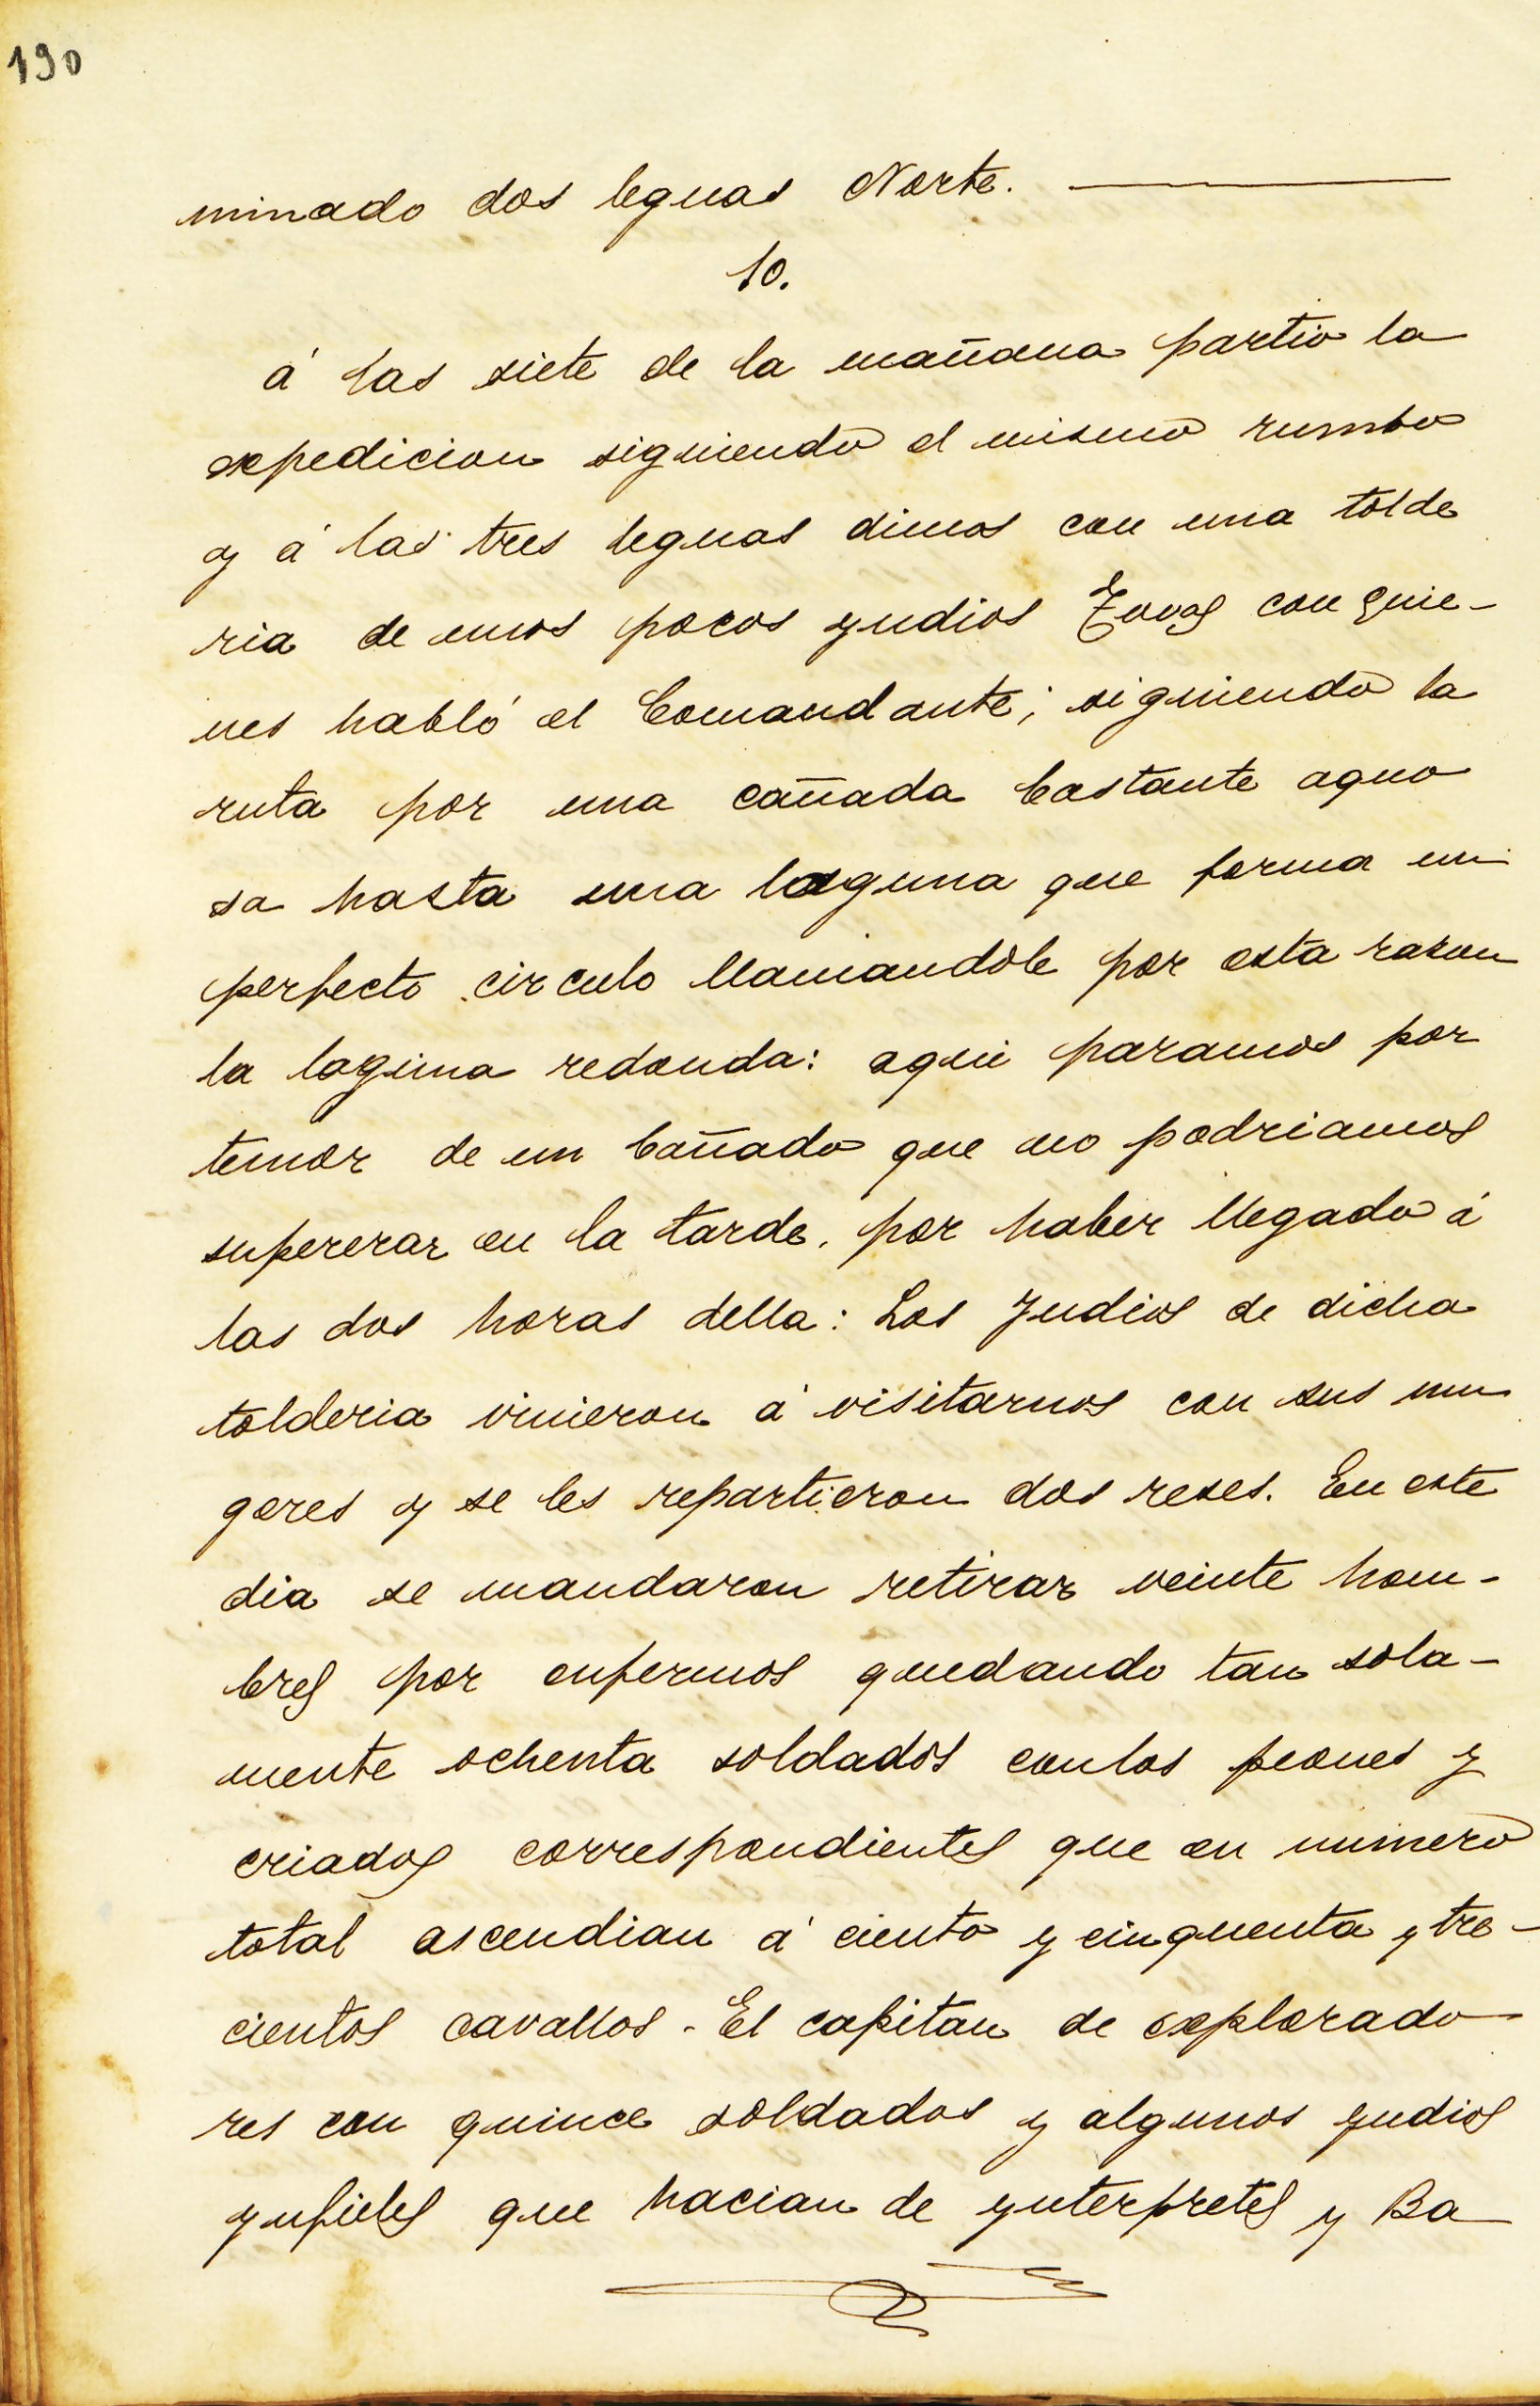 190
minado dos leguas Norte.
10.
á las siete de la mañana partio la
expedicion siguiendo el mismo rumbo
y á las tres leguas dimos con una tolde
ria de unos pocos yndios Tovas con quie-
nes habló el Comandante; siguiendo la
ruta por una cañada bastante aguo
sa hasta una laguna que forma un
perfecto circulo llamandole por esta razon
la laguna redonda: aqui paramos por
temor de un bañado que no podriamos
supererar en la tarde, por haber llegado á
las dos horas della: Los Yndios de dicha
tolderia vinieron á visitarnos con sus mu
geres y se les repartieron dos reses. En este
dia se mandaron retirar veinte hom-
bres por enfermos quedando tan sola-
mente ochenta soldados con los peones y
criados correspondientes que en numero
total ascendian á ciento y cinquenta y tre-
cientos cavallos. El capitan de explorado
res con quince soldados y algunos yndios
ynfieles que hacian de ynterpretes y Ba